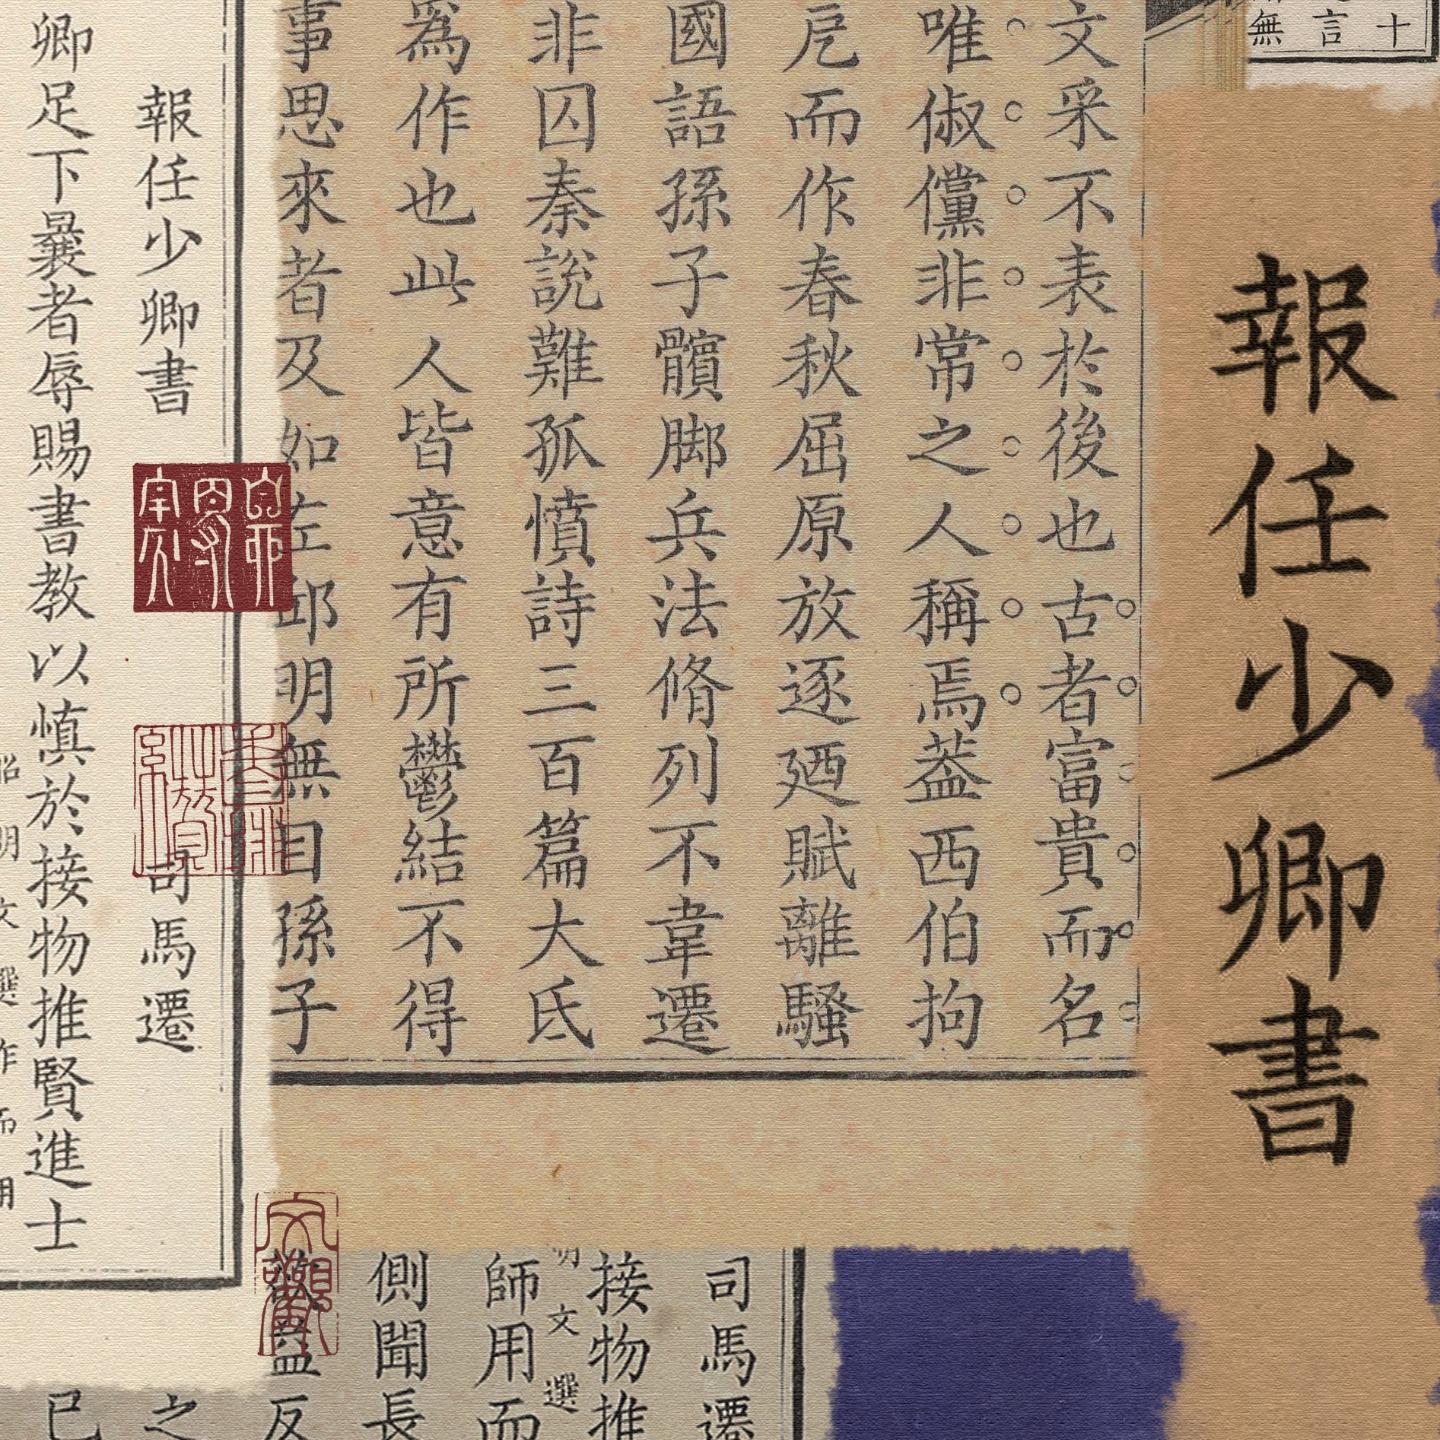 十
言
無
報任少卿書
文采不表於後也古者富貴而名
唯俶儻非常之人稱焉蓋西伯拘
戹而作春秋屈原放逐廼賦離騷
國語孫子髕脚兵法脩列不韋遷
非囚秦說難孤憤詩三百篇大氐
為作也此人皆意有所鬱結不得
事思來者及如左邱明無目孫子
報任少卿書 司馬遷
卿足下曩者辱賜書教以慎於接物推賢進士
昭明文選
司馬遷
接物推
明文選
師用而
側聞長
反
之
已
文觀